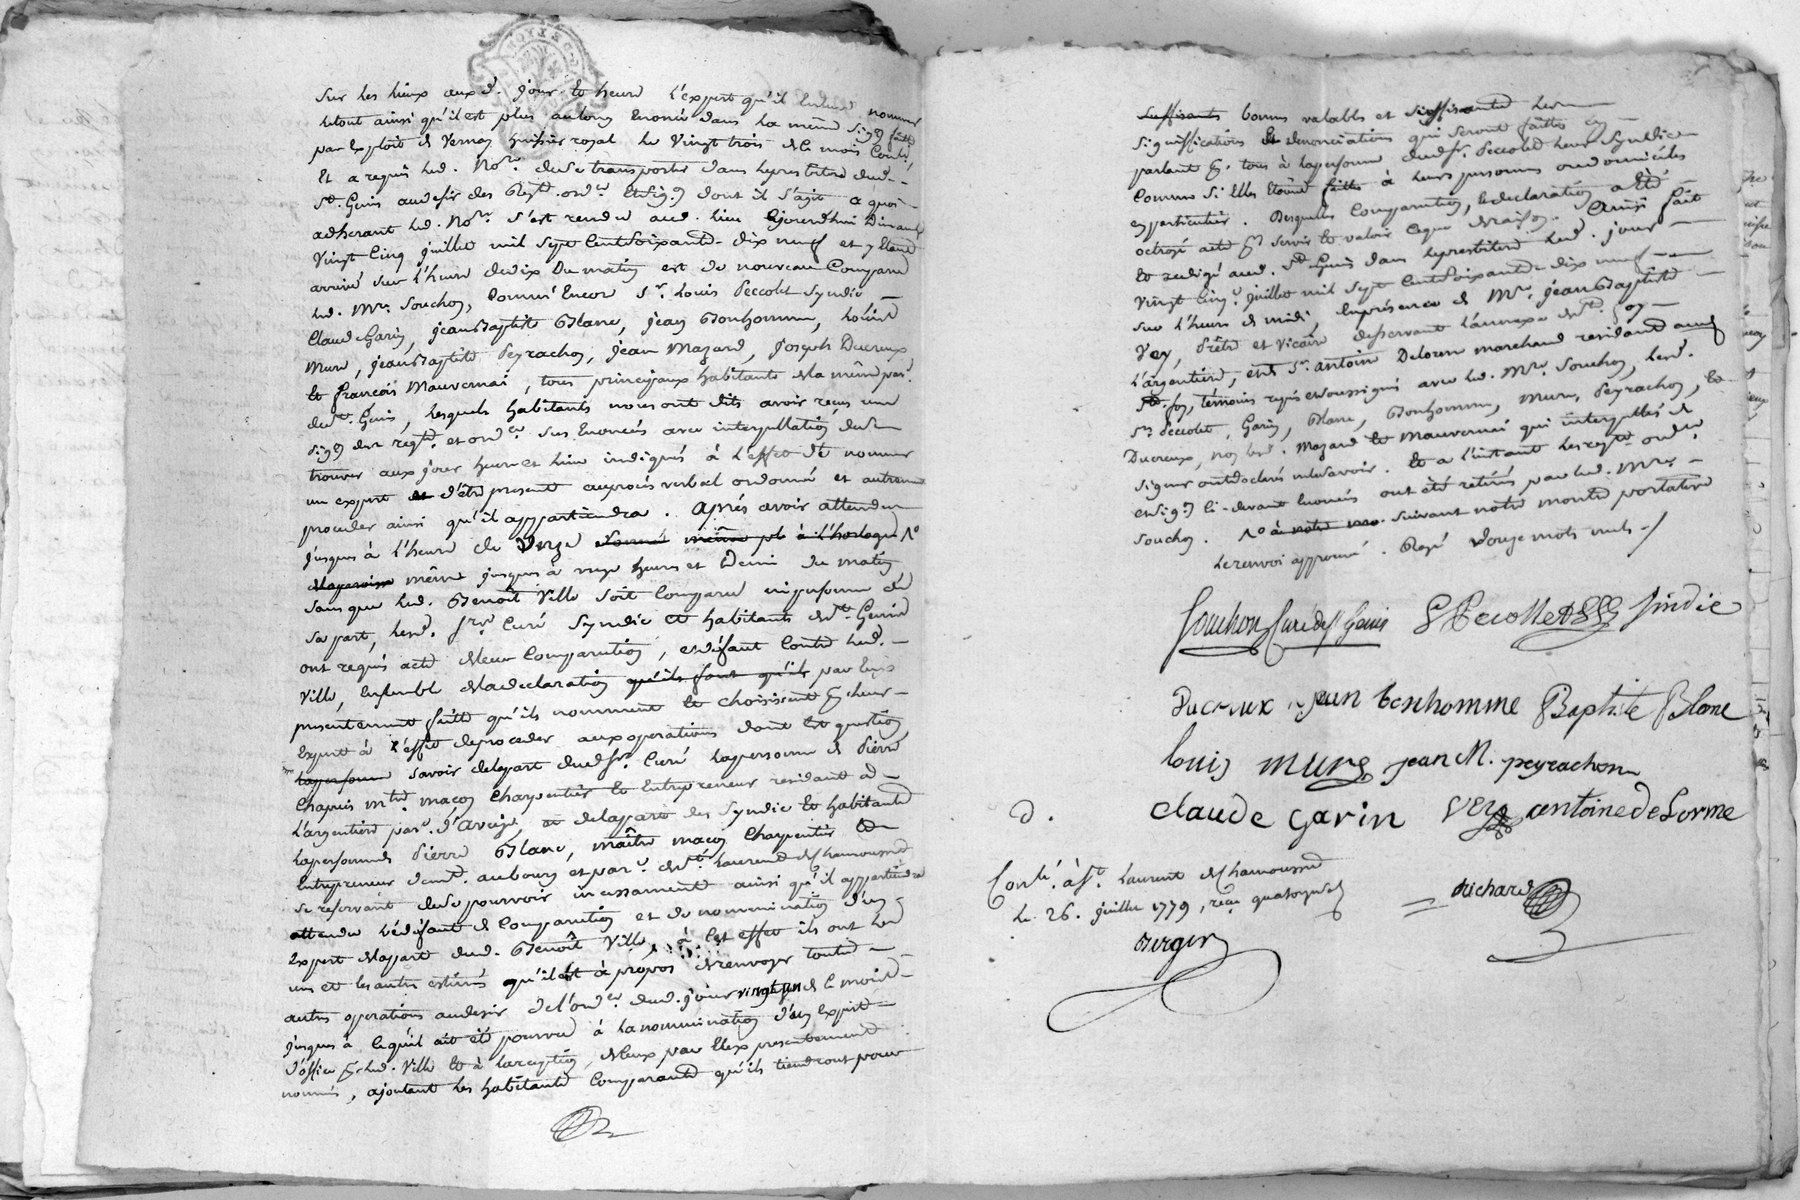 sur les lieux auxd. jour et heure l'expert qu'il entend nommer
letout ainsi qu'il est plus aulong Enoncé dans la même sig.on faitte
par Exploit de Vernay huissier royal le Vingt trois de ce mois Contlé,
Et a requis led. No.re de se transporter dans le presbitere dud.
St. Genis audesir des Reqte. ord.ce Et sig.on dont il s'agit a quoi
adherant led. No.re s'est rendu aud. lieu Cejourdhui Dimanche
Vingt Cinq juillet mil sept Cent Soixante-dix neuf et y Etant
arrivé sur l'heure de dix Du matin est de nouveau Comparu
led. Mre. Souchon, Comme Encor Sr. Louis Peccolet Syndic
Claude Garin, jean Baptiste Blanc, jean Bonhomme, Louis
Mure, jean Baptiste Peyrachon, jean Mazard, joseph Ducreux
et françois Mauvernai, tous principaux habitants de la même par.
de St. Genis, lesquels habitants nous ont dits avoir reçus une
sig.on des reqte. et ord.ce sus Enoncés avec interpellation de se
trouver aux jour heure et lieu indiqués à l'effet de nommer
un expert et d'être present auprocès verbal ordonné et autrement
proceder ainsi qu'il appartiendra. Après avoir attendu
jusques à l'heure de Onze sonné même pt. à l'horloge
même jusques à onze heures et Demi du matin
sans que led. Benoît Ville soit Comparu ni personne de
sa part, lesd. Srs. Curé Syndic et habitants de St. Genis
ont requis acte de leur Comparution, et défaut Contre led.
Ville, Ensemble de la declaration qu'ils font qu'ils par Eux
presentement faitte qu'ils nomment et choisissent pr. leur
Expert à l'effet de proceder aux operations dont est question
la personne savoir de la part dud. Sr. Curé la personne de Pierre
Chapuis mtre. maçon Charpentier et Entrepreneur residant à
L'argentiere par. d'Aveize, et de la part des Syndic et habitants
la personne de Pierre Blanc, maître maçon Charpentier et
Entrepreneur demt. au bourg et par. de St. Laurent de Chamousset
se reservant de se pourvoir incessament ainsi qu'il appartiendra
attendu le défaut de Comparution et de nomination d'un
Expert de la part dud. Benoît Ville, à Cet effet ils ont les
uns et les autres estimés qu'il est à propos de renvoyer toutes
autres operations audesir de l'ord.ce dud. jour vingt un de Ce mois
jusques à Cequ'il ait été pourvu à la nomination d'un Expert
d'office pr. led. Ville et à la reception de Ceux par Eux presentement
nommés, ajoutant les habitants Comparants qu'ils tiendront pour
Suffisants bonnes valables et suffisantes les
Significations et denonciations qui seront faittes en
parlant pr. tous à la personne dud. Sr. Peccolet leur Syndic
Comme si Elles Etoient faittes à leurs personnes ou domiciles
en particulier. Desquelles Comparution, et declaration a Eté
octroyé acte pr. servir et valoir Ceque de raison. Ainsi fait
et redigé aud. St. Genis dans le presbitere led. jour
Vingt Cinq. juillet mil sept Cent Soixante-dix neuf
sur l'heure de midi, En presence de Mre. jean Baptiste
Vey, Prêtre et Vicaire desservant L'annexe de Ste. foy
L'argentiere, et de Sr. antoine Delorme marchand residant aud.
Ste. foy, témoins requis et soussignés avec led. Mre. Souchon, lesd.
Srs. Peccolet, Garin, Blanc, Bonhomme, Mure, Peyrachon, et
Ducreux, non lesd. Mazard et Mauvernai qui interpellés de
signer ont declarés ne le savoir. Et à l'instant les reqte. ord.ce
et sig.on Ci-devant Enoncés ont été retirés par led. Mre.
Souchon. à notre mo. suivant notre montre portative
le renvoi approuvé. Rayé douze mots nuls
Souchon Curé de St Genis L Pecollet Sindic
Ducreux jean bonhomme Baptiste Blanc
louis mure jean M. peyrachon
D. claude garin Vey antoine de Lorme
Contlé. à St. Laurent de Chamousset
le 26. juillet 1779, reçu quatorze s.
Richard